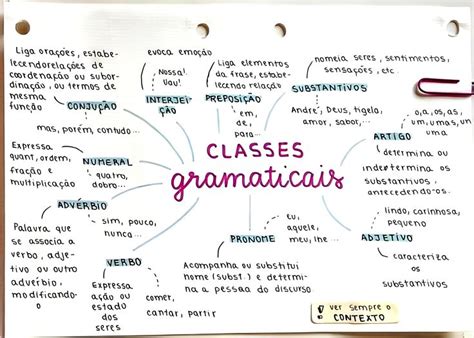 Liga orações, estabe-
lecendo relações de
coordenação ou subor-
dinação, ou termos de
mesma função
CONJUNÇÃO
mas, porém, contudo...
evoca emoção
Nossa!
Uau!
INTERJEI-
ÇÃO
Liga elementos
da frase, estabele-
cendo relação
PREPOSIÇÃO
em,
de,
para...
nomeia seres, sentimentos,
sensações, etc.
SUBSTANTIVOS
André, Deus, tigela,
amor, sabor...
o, a, os, as,
um, uma, uns,
uma
ARTIGO
determina ou
indetermina os
substantivos
antecedendo-os.
CLASSES
gramaticais
Expressa
quant, ordem,
fração e
multiplicação
NUMERAL
quatro,
dobro...
ADVÉRBIO
sim, pouco,
nunca...
Palavra que
se associa a
verbo, adje-
tivo ou outro
advérbio,
modificando-
o
VERBO
Expressa
ação ou
estado
dos
seres
comer,
cantar, partir
eu,
aquele,
meu, lhe...
PRONOME
Acompanha ou substitui
nome (subst.) e determi-
na a pessoa do discurso
lindo, carinhosa,
pequeno
ADJETIVO
caracteriza
os
substantivos
! ver sempre o
CONTEXTO